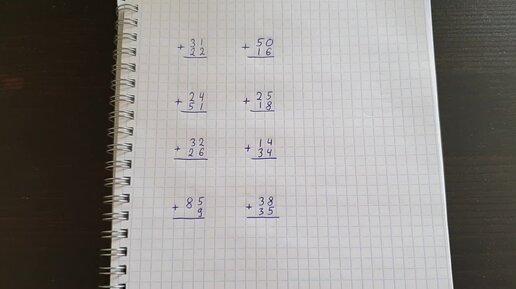 + 31 + 50
22 16
+ 24 + 25
51 18
+ 32 + 14
26 34
+ 85 + 38
9 35